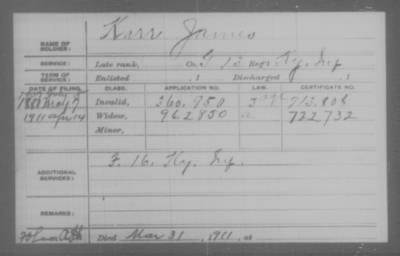 NAME OF SOLDIER: Karr James
SERVICE: Late rank, Co. G 13 Reg't Ky. Inf
TERM OF SERVICE: Enlisted , 1 Discharged , 1
DATE OF FILING. CLASS. APPLICATION NO. LAW. CERTIFICATE NO.
Invalid, 360.750 713.808
1911 Apr 14 Widow, 962850 722732
Minor,
ADDITIONAL SERVICES: F. 16. Ky. Inf.
REMARKS:
Died Mar 31, 1911, at